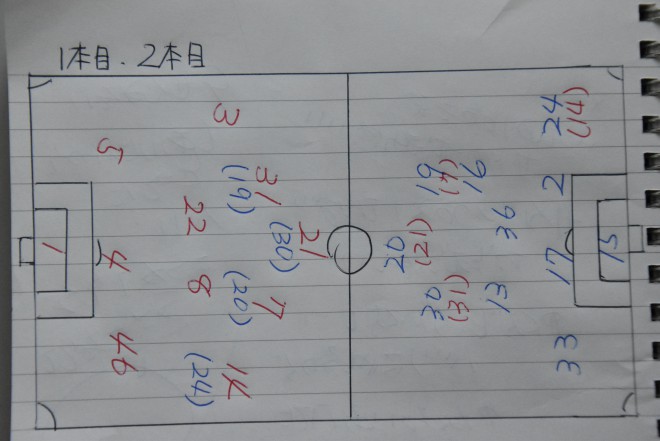 1本目、2本目
3
5
31
(19)
22
21
(30)
1
4
8
7
(20)
46
14
(24)
24
(14)
19
16
2
36
20
(21)
15
17
30
(31)
13
33